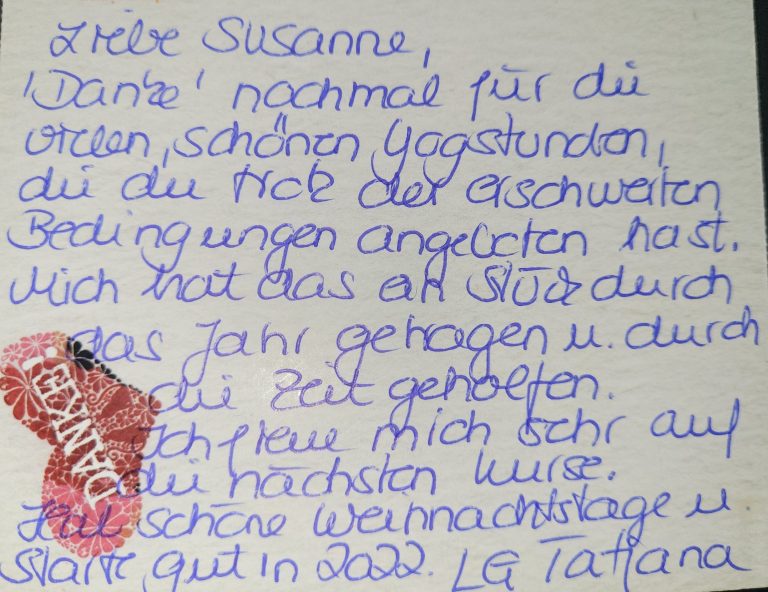 Liebe Susanne,
'Danke' nochmal für die
vielen, schönen Yogstunden,
die du trotz der erschwerten
Bedingungen angeboten hast.
Mich hat das ein Stück durch
das Jahr getragen u. durch
die Zeit geholfen.
Ich freue mich sehr auf
die nächsten Kurse.
Hab schöne Weihnachtstage u.
Starte gut in 2022. LG Tatjana
DANKE!